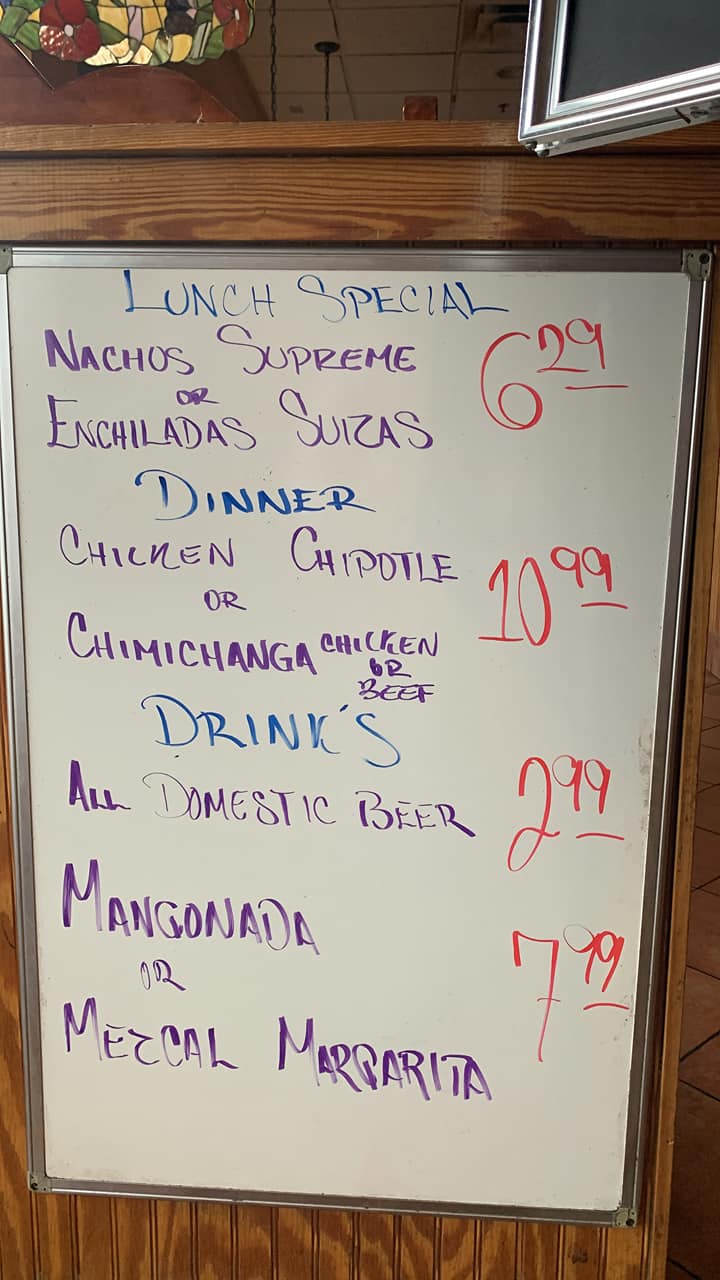 LUNCH SPECIAL
NACHOS SUPREME 6 29
OR
ENCHILADAS SUIZAS
DINNER
CHICKEN CHIPOTLE 10 99
OR
CHIMICHANGA CHICKEN
OR
BEEF
DRINK'S
ALL DOMESTIC BEER 2 99
MANGONADA 7 99
OR
MEZCAL MARGARITA